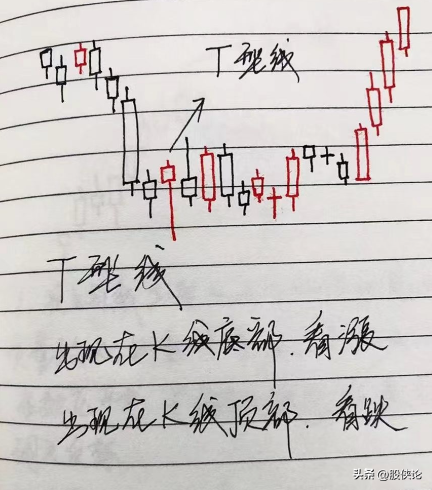 T型线
T型线
出现在K线底部.看漲
出现在K线顶部.看跌
头条@股侠论